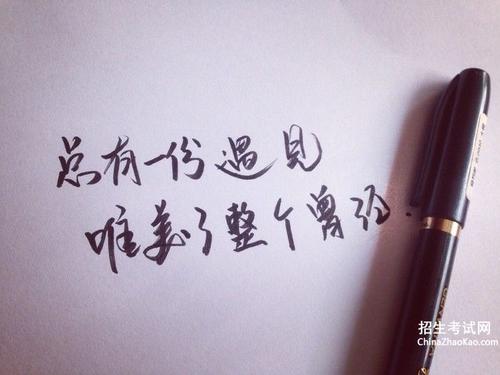 总有一份遇见
唯美了整个曾经.
招生考试网
ChinaZhaoKao.com